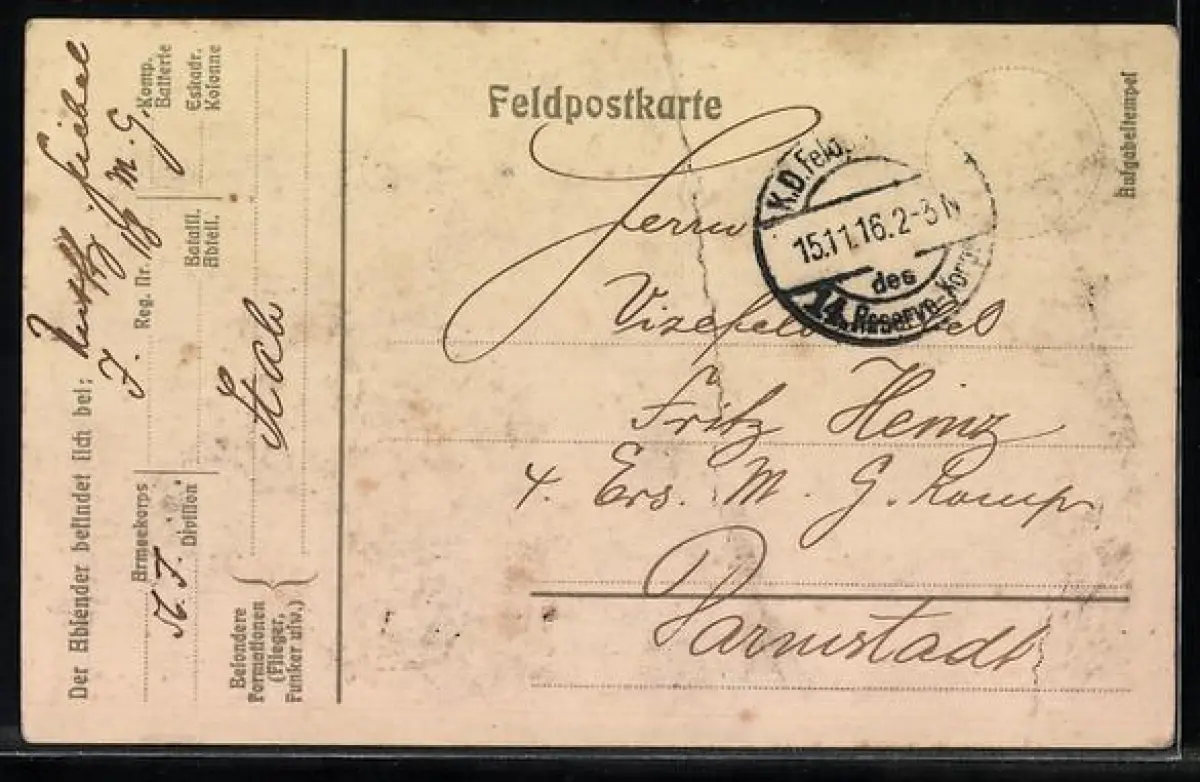 Feldpostkarte
Aufgabestempel
K.D. Feld
15.11.16. 2-3 N
des
14. Reserve-Korps
Herrn
Vizefeldwebel
Fritz Heinz
4. Ers. M. G. Komp
Darmstadt
Der Absender befindet sich bei:
Armeekorps
Division
J. Reg. Nr.
Bataill.
Abteil.
M. G.
Komp.
Batterie
Eskadr.
Kolonne
Besondere
Formationen
(Flieger,
Funker usw.)
Stab